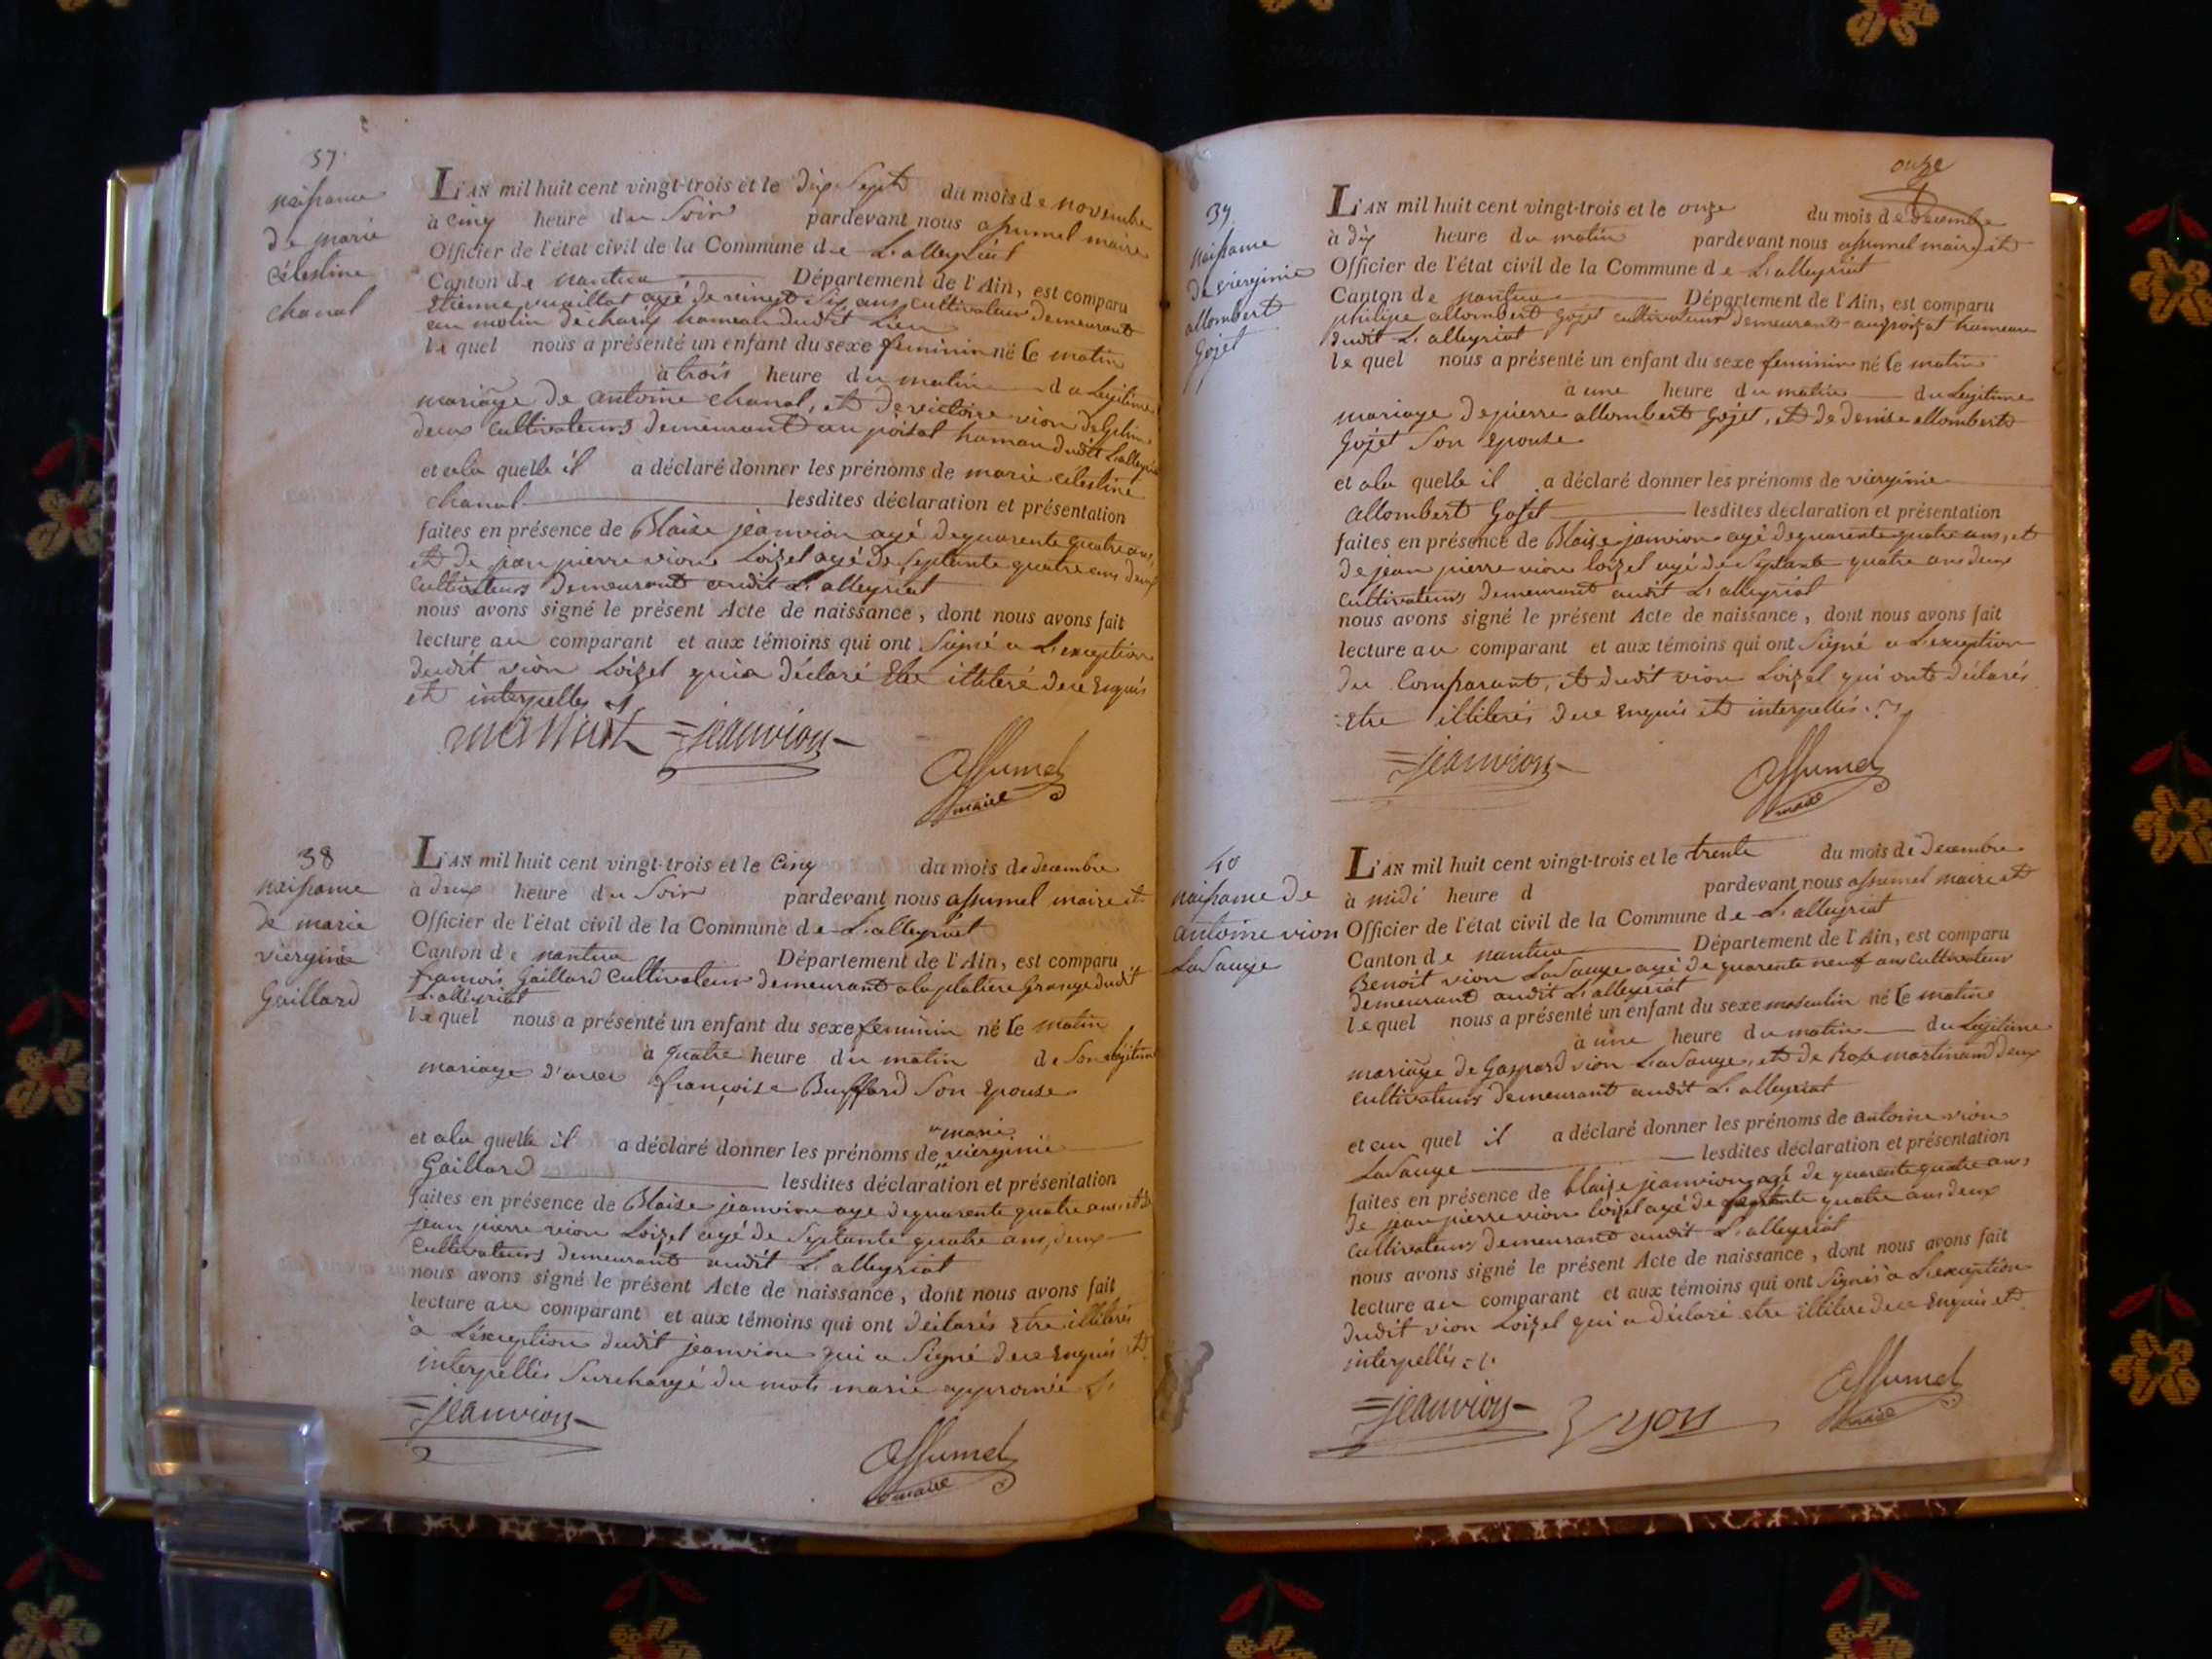 37
naissance
de marie
célestine
chanal
L'AN mil huit cent vingt-trois et le dix Sept du mois de novembre
à cinq heure du Soir pardevant nous assumel maire
Officier de l'état civil de la Commune de L'alleyriat
Canton de nantua Département de l'Ain, est comparu
Etienne maillat agé de vingt Six ans cultivateur demeurant
au molin de charix hameau dudit Lieu
le quel nous a présenté un enfant du sexe feminin né le matin
à trois heure du matin du Légitime
mariage de antoine chanal, et de victoire vion
deux cultivateurs demeurant au poizat hamau dudit L'alleyriat
et ala quelle il a déclaré donner les prénoms de marie célestine
chanal lesdites déclaration et présentation
faites en présence de Blaise jeanvion agé dequarente quatre ans,
et de jean pierre vion Loizel agé de Septante quatre ans deux
cultivateurs demeurant audit L'alleyriat
nous avons signé le présent Acte de naissance, dont nous avons fait
lecture au comparant et aux témoins qui ont Signé a L'exception
dudit vion Loizel qui a déclaré Etre illiteré dece Enquis
et interpellés
jeanvion
assumel
maire
38
naissance
de marie
viergine
Gaillard
L'AN mil huit cent vingt-trois et le Cinq du mois de decembre
à deux heure du Soir pardevant nous assumel maire et
Officier de l'état civil de la Commune de L'alleyriat
Canton de nantua Département de l'Ain, est comparu
francois Gaillard Cultivateur demeurant ala platiere Grange dudit
L'alleyriat
le quel nous a présenté un enfant du sexe feminin né le matin
à quatre heure du matin de Son Légitime
mariage d'avec françoise Buffard Son Epouse
marie
et ala quelle il a déclaré donner les prénoms de vierginie
Gaillard lesdites déclaration et présentation
faites en présence de Blaise jeanvion age dequarente quatre ans et de
jean pierre vion Loizel agé de Septante quatre ans, deux
Cultivateurs demeurant audit L'alleyriat
nous avons signé le présent Acte de naissance, dont nous avons fait
lecture au comparant et aux témoins qui ont déclarés Etre illiterés
à L'exception dudit jeanvion qui a Signé dece Enquis et
interpellés Surchargé du mots marie approuvée
jeanvion
assumel
maire
onze
39
naissance
de vierginie
allombert
Gojet
L'AN mil huit cent vingt-trois et le onze du mois de decembre
à dix heure du matin pardevant nous assumel maire et
Officier de l'état civil de la Commune de L'alleyriat
Canton de nantua Département de l'Ain, est comparu
philipe allombert Gojet cultivateur demeurant au poizat hameau
dudit L'alleyriat
le quel nous a présenté un enfant du sexe feminin né le matin
à une heure du matin du Légitime
mariage de pierre allombert Gojet, et de denise allombert
Gojet Son Epouse
et ala quelle il a déclaré donner les prénoms de vierginie
allombert Gojet lesdites déclaration et présentation
faites en présence de Blaise janvion agé dequarente quatre ans, et
de jean pierre vion loizel agé de Septante quatre ans deux
cultivateurs demeurant audit L'alleyriat
nous avons signé le présent Acte de naissance, dont nous avons fait
lecture au comparant et aux témoins qui ont Signé a L'exception
du Comparant, et dudit vion Loizel qui ont déclarés
Etre illiterés dece Enquis et interpellés
jeanvion
assumel
maire
40
naissance de
antoine vion
LaSauge
L'AN mil huit cent vingt-trois et le trente du mois de decembre
à midi heure d pardevant nous assumel maire et
Officier de l'état civil de la Commune de L'alleyriat
Canton de nantua Département de l'Ain, est comparu
Benoit vion LaSauge agé de quarente neuf ans cultivateur
demeurant audit L'alleyriat
le quel nous a présenté un enfant du sexe masculin né le matin
à une heure du matin du Légitime
mariage de Gaspard vion LaSauge, et de Rose martinand deux
cultivateurs demeurant audit L'alleyriat
et au quel il a déclaré donner les prénoms de antoine vion
LaSauge lesdites déclaration et présentation
faites en présence de blaise jeanvion agé de quarente quatre ans,
de jean pierre vion loizel agé de septante quatre ans deux
Cultivateurs demeurant audit L'alleyriat
nous avons signé le présent Acte de naissance, dont nous avons fait
lecture au comparant et aux témoins qui ont Signés a L'exception
dudit vion Loizel qui a déclaré etre illitere dece Enquis et
interpellés
jeanvion
vyon
assumel
maire